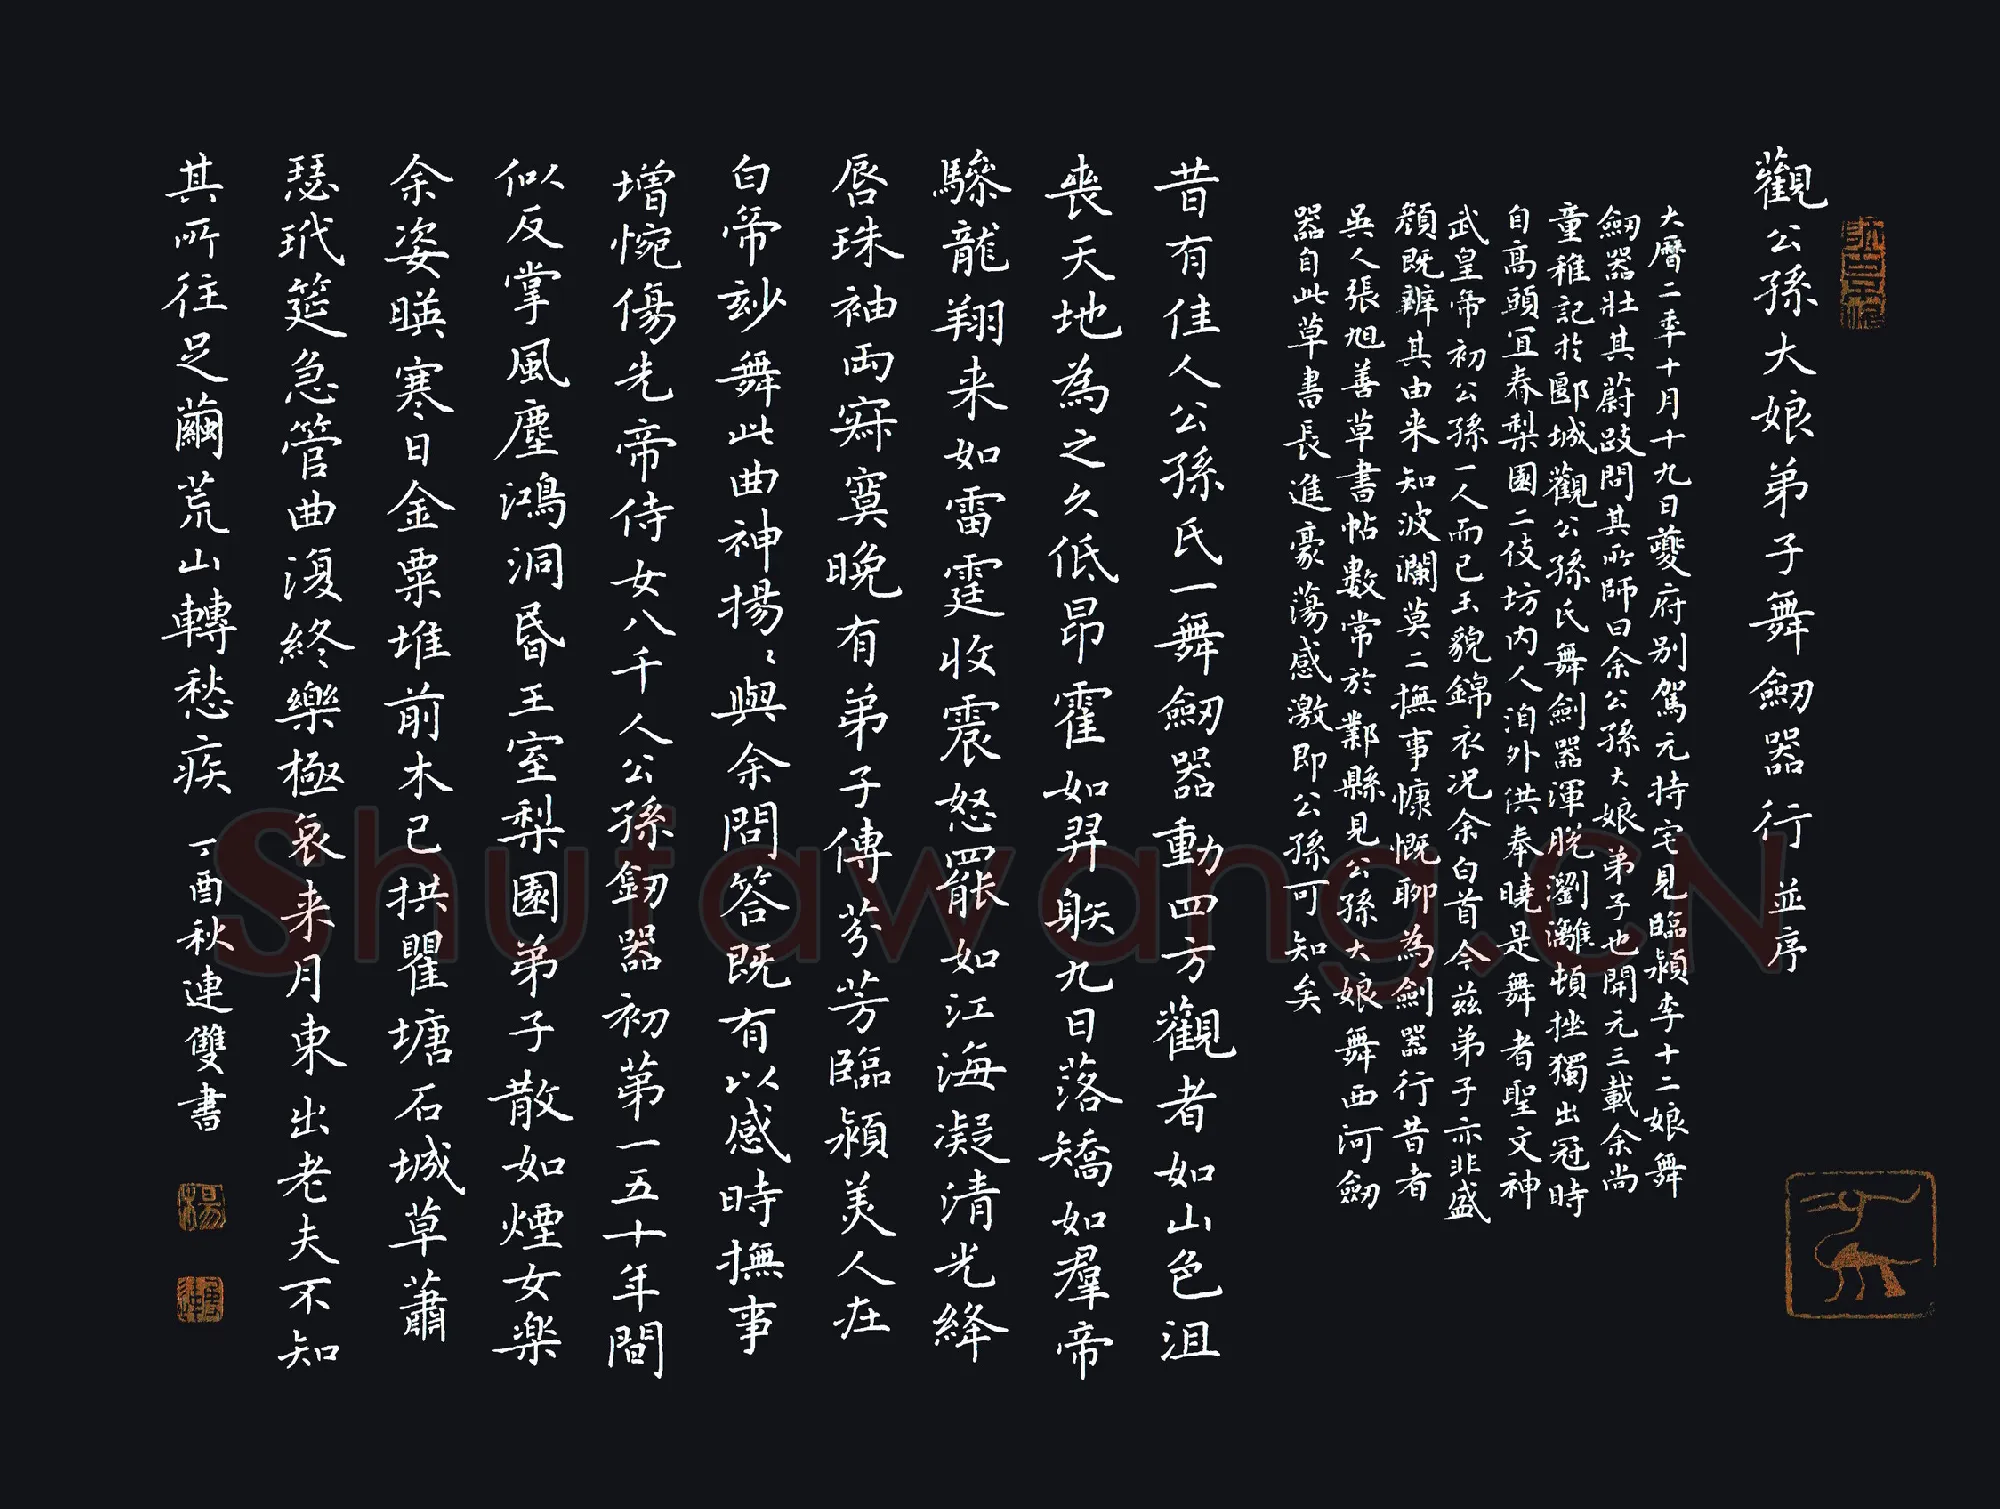 觀公孫大娘弟子舞劒器行並序
大曆二季十月十九日夔府別駕元持宅見臨潁李十二娘舞
劒器壯其蔚跂問其所師曰余公孫大娘弟子也開元三載余尚
童稚記於郾城觀公孫氏舞劍器渾脫瀏灕頓挫獨出冠時
自高頭宜春梨園二伎坊內人洎外供奉曉是舞者聖文神
武皇帝初公孫一人而已玉貌錦衣况余白首今茲弟子亦非盛
顏既辨其由来知波瀾莫二撫事慷慨聊為劍器行昔者
吳人張旭善草書帖數常於鄴縣見公孫大娘舞西河劒
器自此草書長進豪蕩感激即公孫可知矣
昔有佳人公孫氏一舞劒器動四方觀者如山色沮
喪天地為之久低昂霍如羿䠶九日落矯如羣帝
驂龍翔来如雷霆收震怒罷如江海凝清光絳
唇珠袖兩寂寞晚有弟子傳芬芳臨潁美人在
白帝玅舞此曲神揚〻與余問答既有以感時撫事
增惋傷先帝侍女八千人公孫劒器初第一五十年間
似反掌風塵澒洞昏王室梨園弟子散如煙女樂
余姿暎寒日金粟堆前木已拱瞿塘石城草蕭
瑟玳筵急管曲復終樂極哀来月東出老夫不知
其所往足繭荒山轉愁疾 丁酉秋連雙書
楊
Shufawang.CN